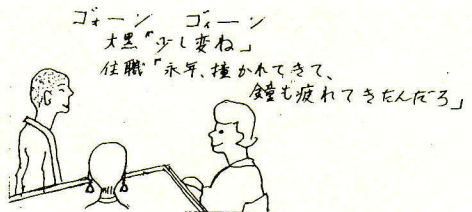 ゴォーン　ゴィーン
大黒「少し変ね」
住職「永年、撞かれてきて、
鐘も疲れてきたんだろ」